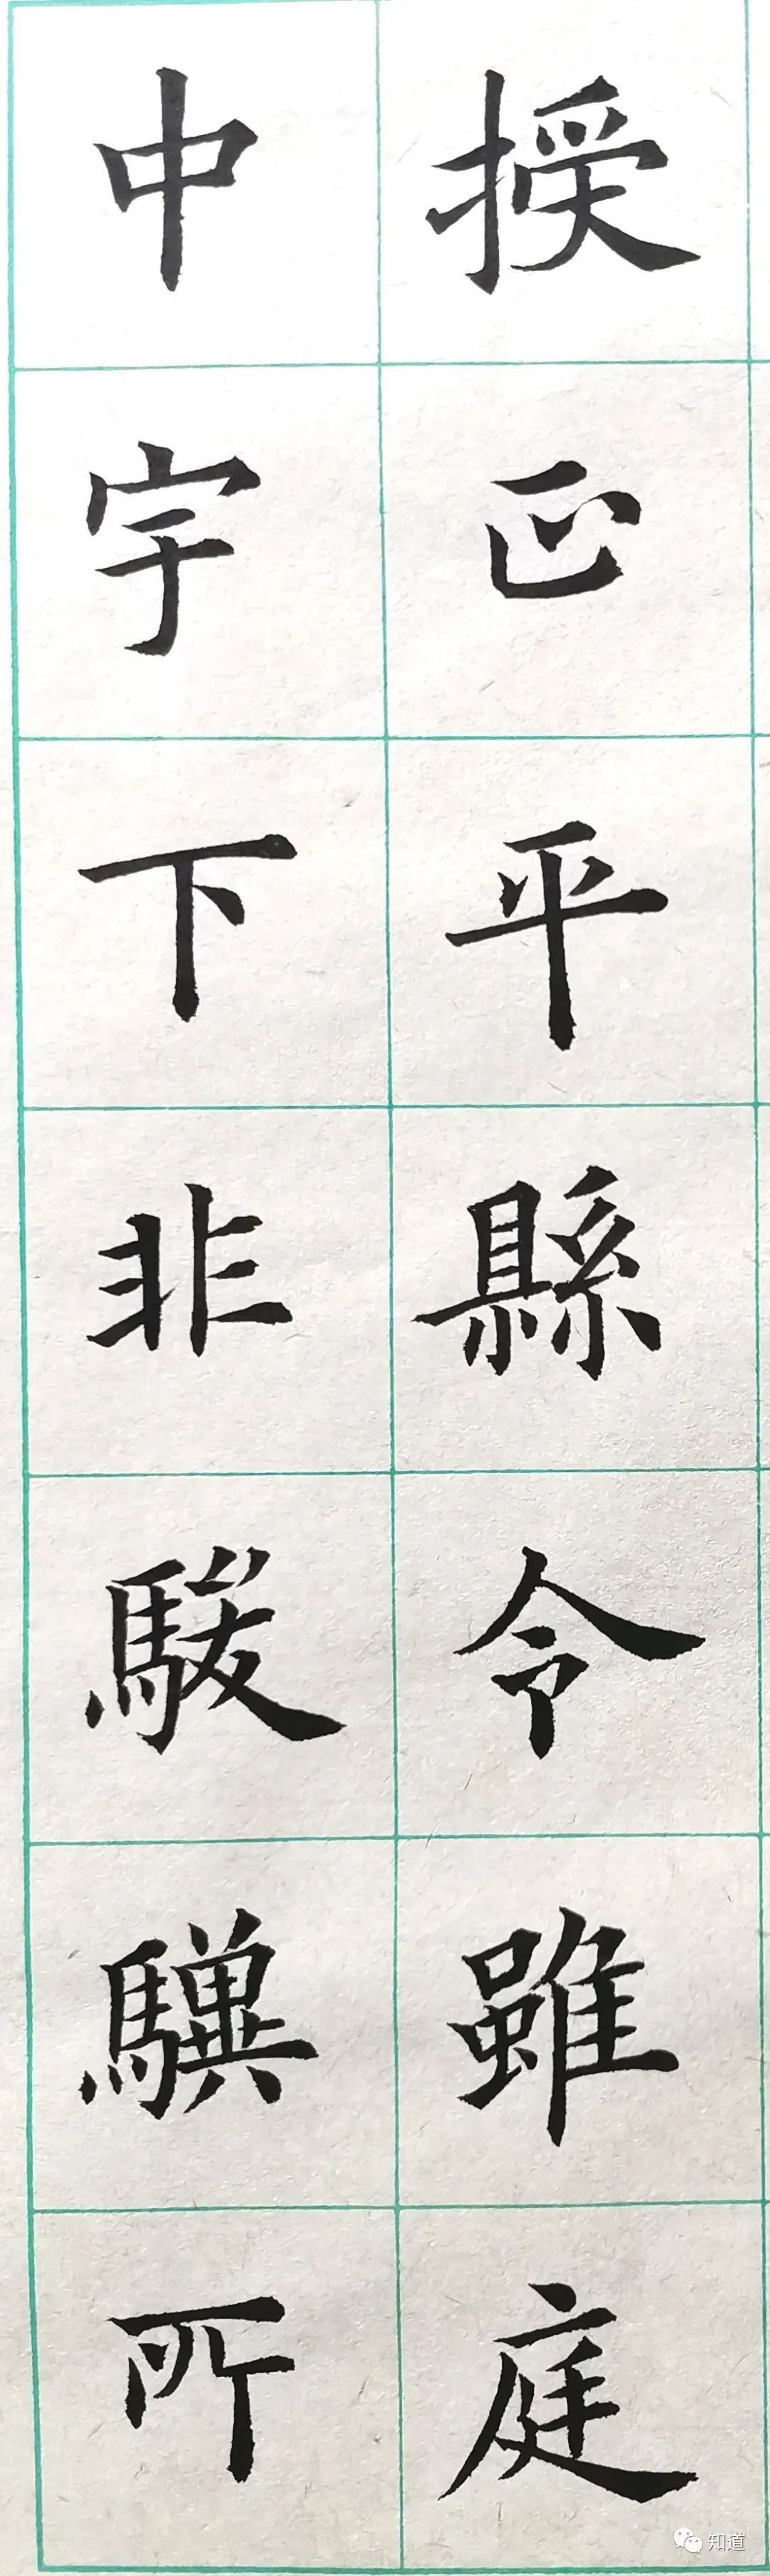 授正平縣令雖庭
中宇下非駿驥所
知道